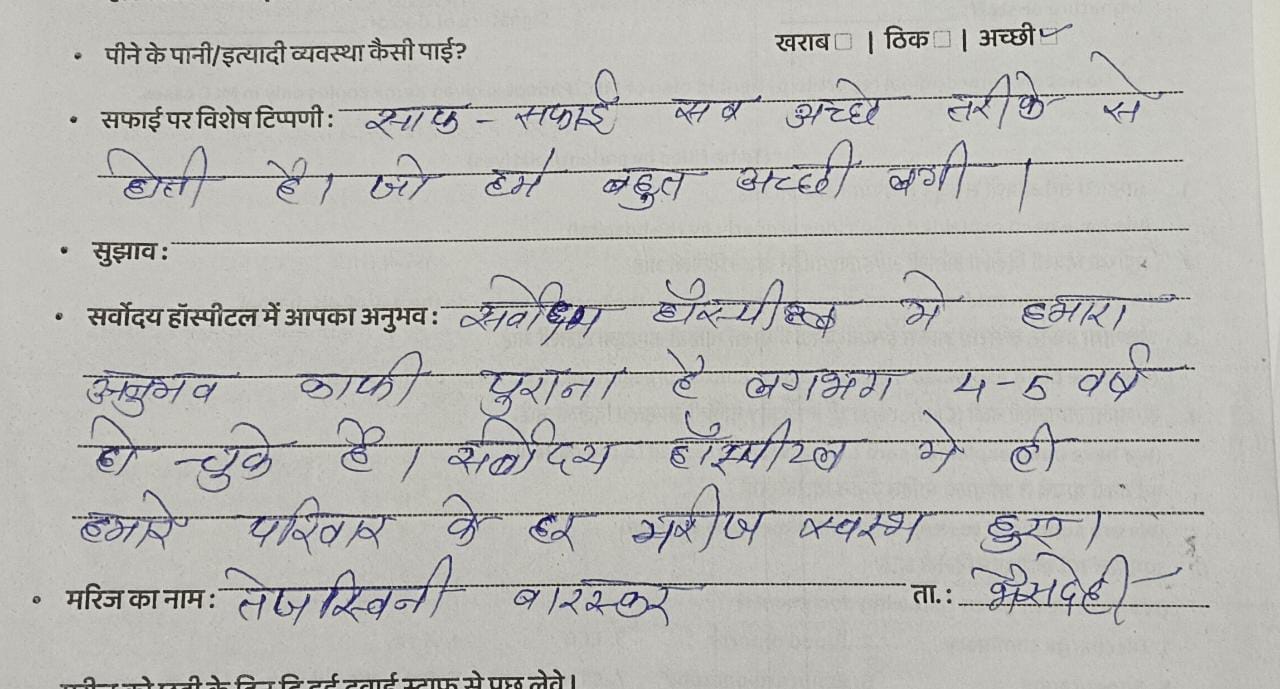 • पीने के पानी/इत्यादी व्यवस्था कैसी पाई? खराब☐ | ठिक☐ | अच्छी☑
• सफाई पर विशेष टिप्पणी : साफ - सफाई सब अच्छे तरीके से
होती है। जो हमे बहुत अच्छी लगी ।
• सुझाव :
• सर्वोदय हॉस्पीटल में आपका अनुभव : सर्वोदय हॉस्पीटल मे हमारा
अनुभव काफी पुराना है लगभग 4-5 वर्ष
हो चुके है। सर्वोदय हॉस्पीटल मे ही
हमारे परिवार के हर मरीज स्वस्थ हुए।
• मरिज का नाम : तेजस्विनी बारस्कर ता.: भैंसदेही